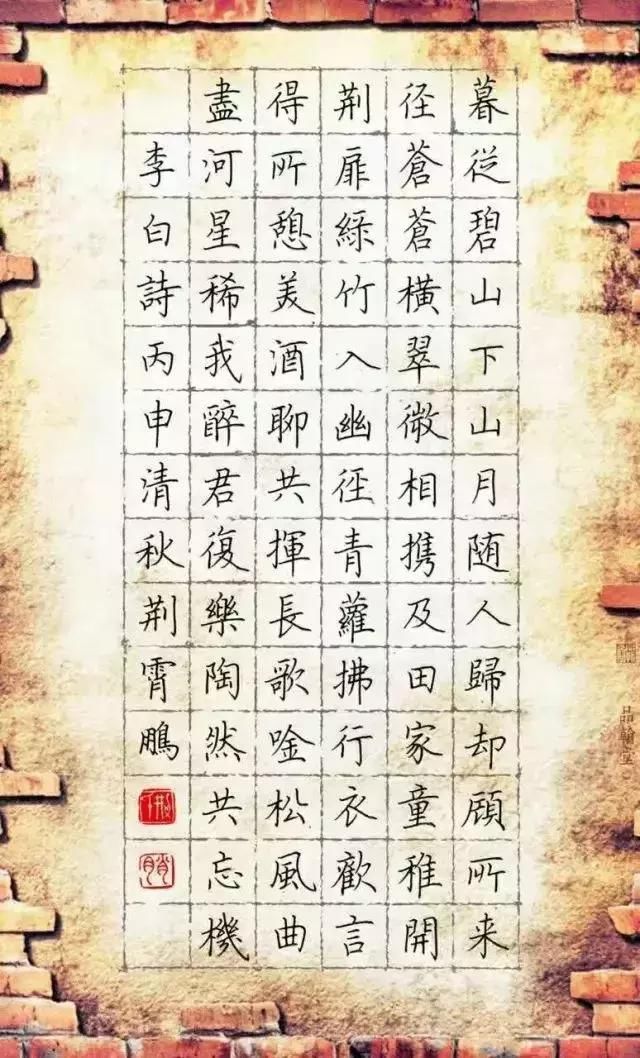 暮従碧山下山月随人歸却顧所来
径蒼蒼橫翠微相携及田家童稚開
荆扉綠竹入幽径青蘿拂行衣歡言
得所憩美酒聊共揮長歌唫松風曲
盡河星稀我醉君復樂陶然共忘機
李白詩丙申清秋荆霄鵬
品翰堂